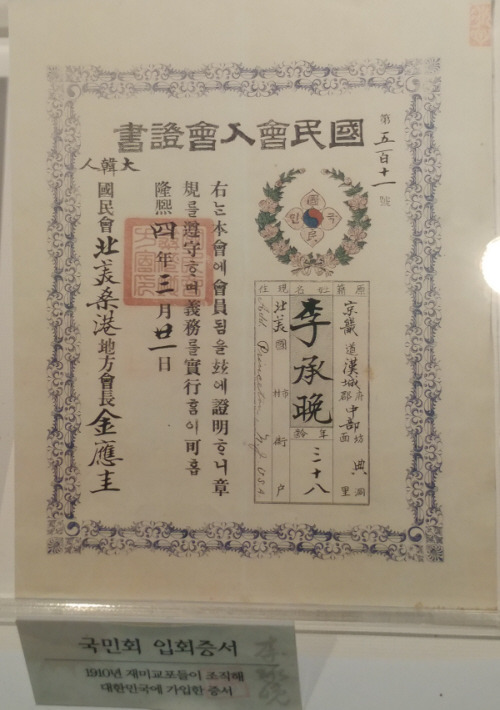 國民會入會證書
第五百十一號
國
민 국
民
原籍 姓名 現住
京畿道漢城府郡中部坊面典洞里
李承晚
年齡
三十八
北美國
Princeton, N.J. U.S.A
右는本會에會員됨을玆에證明ᄒᆞ니章
規를遵守ᄒᆞ며義務를實行홈이可홈
隆熙四年三月廿一日
大韓人
國民會北美桑港地方會長金應圭
국민회 입회증서
1910년 재미교포들이 조직해
대한민국에 가입한 증서